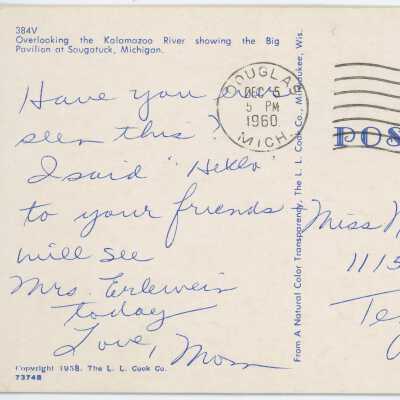 384V
Overlooking the Kalamazoo River showing the Big
Pavilion at Saugatuck, Michigan.
DOUGLAS
DEC 5
5 PM
1960
MICH.
POS
Have you ever
seen this?
I said "Hello"
to your friends
will see
Mrs. Erlewein
today
Love, Mom
Miss
1115
Copyright 1958. The L. L. Cook Co.
73748
From A Natural Color Transparency, The L. L. Cook Co., Milwaukee, Wis.